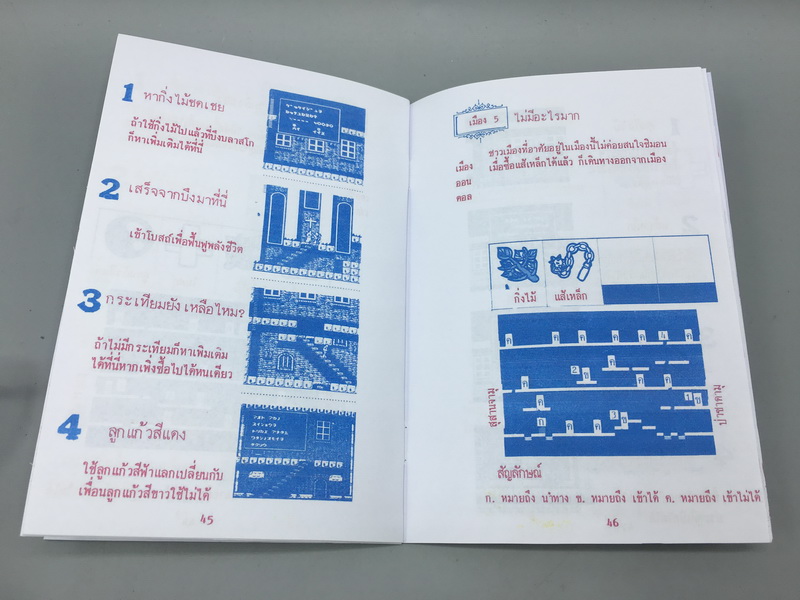 1 หากิ่งไม้ชดเชย
ถ้าใช้กิ่งไม้ไป แล้วที่บึงบลาสโก
ก็หาเพิ่มเติมได้ที่นี่
2 เสร็จจากบึงมาที่นี่
เข้าโบสถ์เพื่อฟื้นฟูพลังชีวิต
3 กระเทียมยัง เหลือไหม?
ถ้าไม่มีกระเทียมก็หาเพิ่มเติม
ได้ที่นี่หากเพิ่งซื้อไปได้หนเดียว
4 ลูกแก้วสีแดง
ใช้ลูกแก้วสีฟ้าแลกเปลี่ยนกับ
เพื่อนลูกแก้วสีขาวใช้ไม่ได้
45
เมือง 5 ไม่มีอะไรมาก
เมือง
ออน
ดอล
ชาวเมืองที่อาศัยอยู่ในเมืองนี้ไม่ค่อยสนใจซิมอน
เมื่อซื้อแส้เหล็กได้แล้ว ก็เดินทางออกจากเมือง
กิ่งไม้ แส้เหล็ก
ค ค ค ค 4 ค
ค 2 ข ค ค ค
ค 1 ข
ก ค ค 3 ข
สุสานจามู
ป่าซาดามู
สัญลักษณ์
ก. หมายถึง นำทาง ข. หมายถึง เข้าได้ ค. หมายถึง เข้าไม่ได้
46